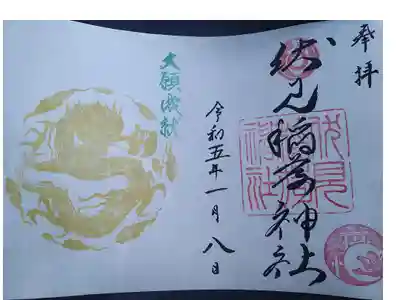 奉拝
伏見稲荷神社
令和五年一月八日
大願成就
伏見
稲荷
神社